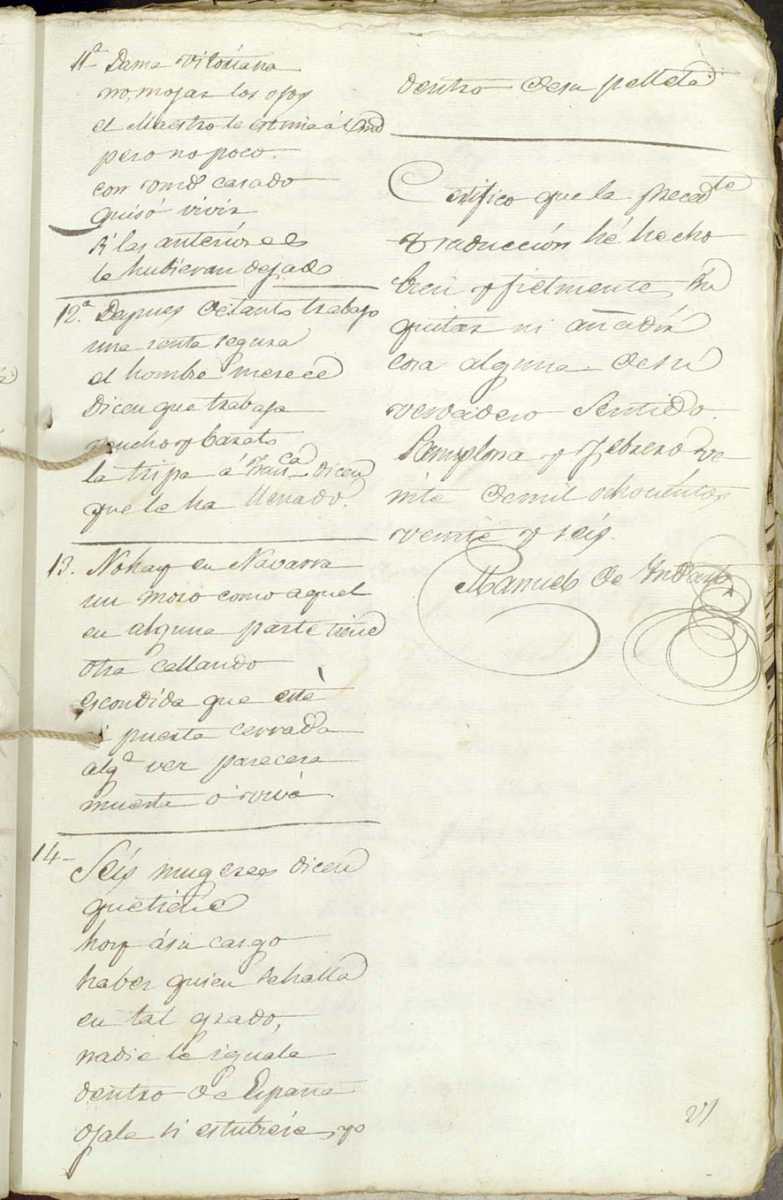 11ª Dama Vitoriana
no mojar los ojos
el Maestro le estima á
pero no poco.
con vmd casado
quisó vivir
si las anteriores
le hubieran dejado
12ª Despues de tanto trabajo
una renta segura
el hombre merece
dicen que trabaja
mucho y barato
la tripa á Franca dicen
que le ha llenado.
13. No hay en Navarra
un moro como aquel
en alguna parte tiene
otra callando
escondida que esté
á puerta cerrada
algª ver parecera
muerta ó viva
14- Seis mugeres dicen
que tiene
hoy á su cargo
haber quien se halla
en tal grado,
nadie le iguala
dentro de España
ojala si estubiese yo
dentro de su pelleta
Certifico que la precadte
traducción hé hecho
bien y fielmente, sin
quitar ni añadir
cosa alguna de su
verdadero sentido.
Pamplona y Febrero ve-
inte de mil ochocientos
veinte y seis.
Manuel de Indart
21